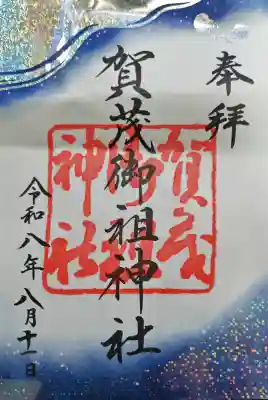 奉拝
賀茂御祖神社
賀茂
御祖
神社
令和八年八月十一日